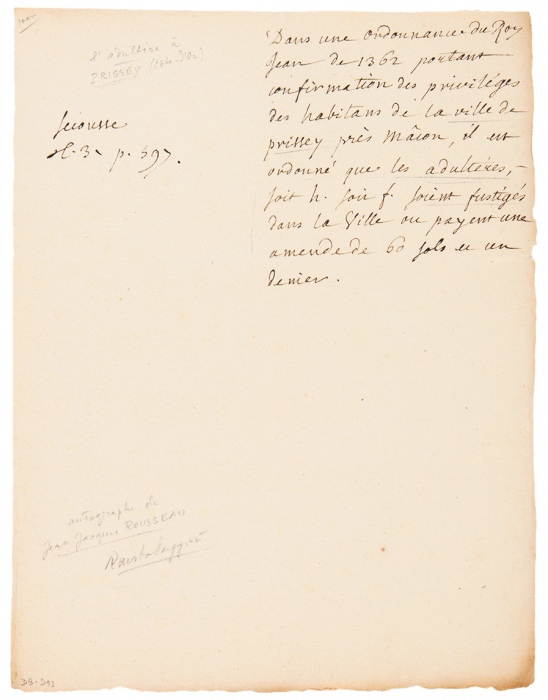 l'adultère à
PRISSEY (Côte-d'Or)
Secousse
t. 3. p. 597.
Dans une ordonnance du Roy
Jean de 1362 portant
confirmation des privilèges
des habitans de la ville de
prissey près Mâcon, il est
ordonné que les adultères,
soit h. soit f. soient fustigés
dans la Ville ou payent une
amende de 60 sols et un
denier.
autographe de
Jean Jacques ROUSSEAU